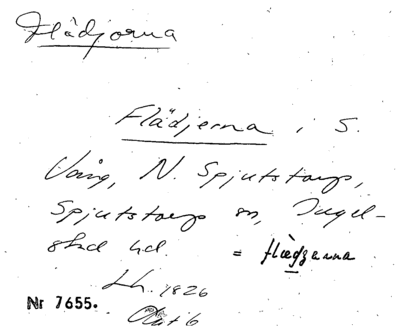 Flädjorna
Flädjerna i S.
Vång, N. Spjutstorps,
Spjutstorps sn, Ingel-
stad hd. = flædjanna
Lh. 1826
Nr 7655.